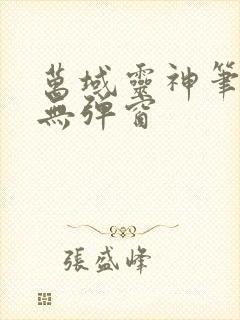 萬域靈神筆
無彈窗
張盛峰